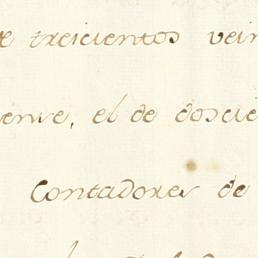 e treicientos vein
enve, el de doscie
Contadores de